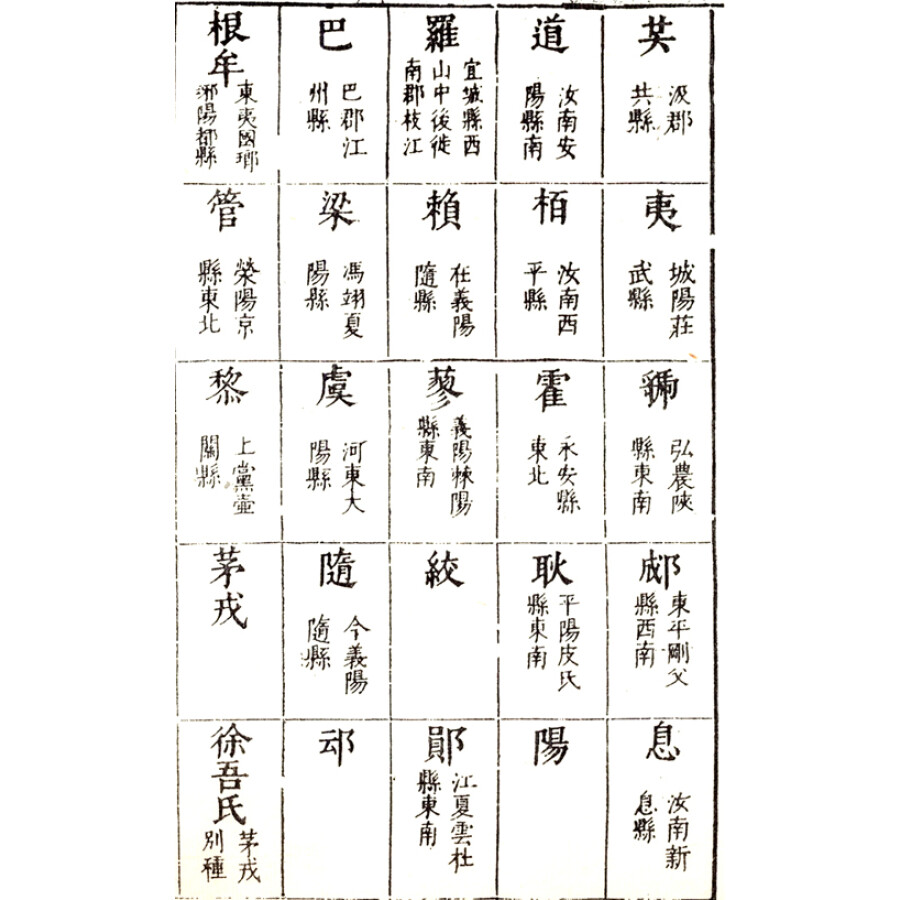 共
汲郡
共縣
夷
城陽莊
武縣
虢
弘農陝
縣東南
郕
東平剛父
縣西南
息
汝南新
息縣
道
汝南安
陽縣南
栢
汝南西
平縣
霍
永安縣
東北
耿
平陽皮氏
縣東南
陽
羅
宜城縣西
山中後徙
南郡枝江
賴
在義陽
隨縣
蓼
義陽棘陽
縣東南
絞
鄖
江夏雲杜
縣東南
巴
巴郡江
州縣
梁
馮翊夏
陽縣
虞
河東大
陽縣
隨
今義陽
隨縣
根牟
東夷國瑯
琊陽都縣
管
滎陽京
縣東北
黎
上黨壺
關縣
茅戎
徐吾氏
茅戎
別種